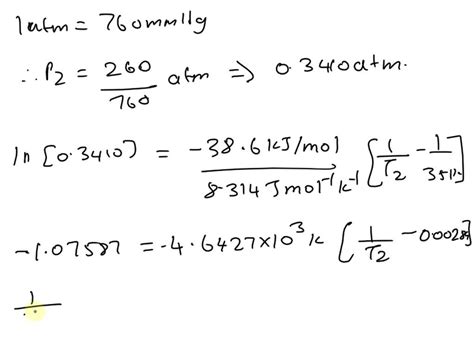 1 atm = 760mmHg
∴ P2 = 260/760 atm => 0.3410atm.
ln [0.3410] = -38.6 kJ/mol / 8.314 J mol^-1 k^-1 [1/T2 - 1/351k
-1.07587 = -4.6427×10^3 k [1/T2 -0.00285]
1